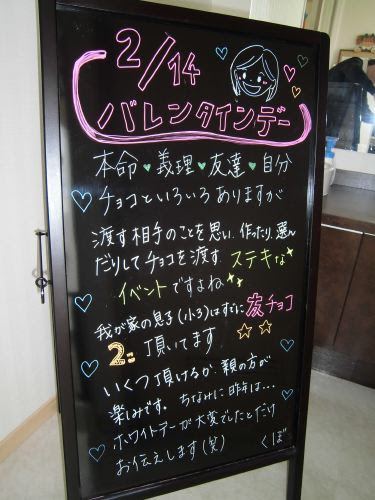 2/14
バレンタインデー
本命♥義理♥友達♥自分
チョコといろいろありますが
渡す相手のことを思い、作ったり、選ん
だりしてチョコを渡す ステキな
イベントですよね
我が家の息子(小3)はすでに友チョコ
2コ 頂いてます
いくつ頂けるか、親の方が
楽しみです。ちなみに昨年は…
ホワイトデーが大変でしたとだけ
お伝えします(笑) くぼ